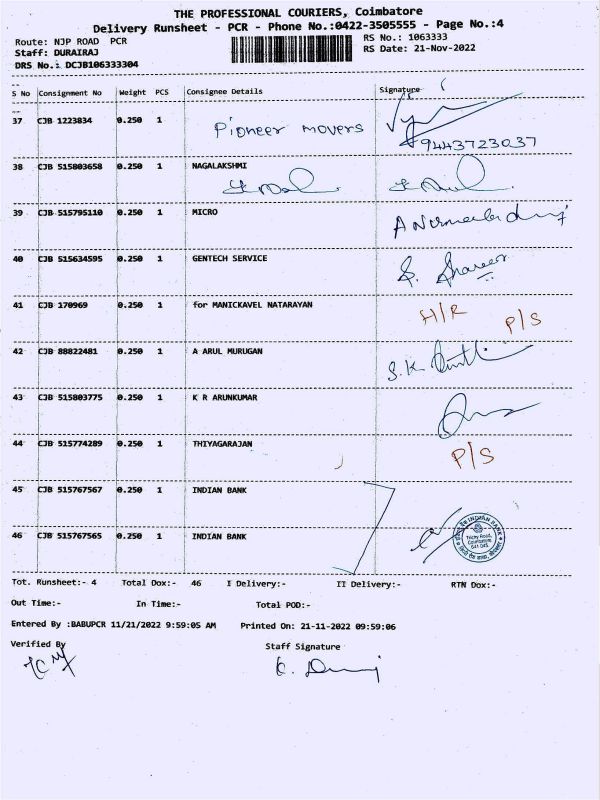 THE PROFESSIONAL COURIERS, Coimbatore
Delivery Runsheet - PCR - Phone No.:0422-3505555 - Page No.:4
Route: NJP ROAD PCR
RS No.: 1063333
Staff: DURAIRAJ
RS Date: 21-Nov-2022
DRS No.: DCJB106333304
S No Consignment No Weight PCS Consignee Details Signature
37 CJB 1223834 0.250 1 Pioneer movers
9443723037
38 CJB 515803658 0.250 1 NAGALAKSHMI
39 CJB 515795110 0.250 1 MICRO
40 CJB 515634595 0.250 1 GENTECH SERVICE
41 CJB 170969 0.250 1 for MANICKAVEL NATARAYAN H/R P/S
42 CJB 88822481 0.250 1 A ARUL MURUGAN S.K
43 CJB 515803775 0.250 1 K R ARUNKUMAR
44 CJB 515774289 0.250 1 THIYAGARAJAN P/S
45 CJB 515767567 0.250 1 INDIAN BANK
46 CJB 515767565 0.250 1 INDIAN BANK
INDIAN BANK
Trichy Road,
Coimbatore
Tot. Runsheet:- 4 Total Dox:- 46 I Delivery:- II Delivery:- RTN Dox:-
Out Time:- In Time:- Total POD:-
Entered By :BABUPCR 11/21/2022 9:59:05 AM Printed On: 21-11-2022 09:59:06
Verified By Staff Signature